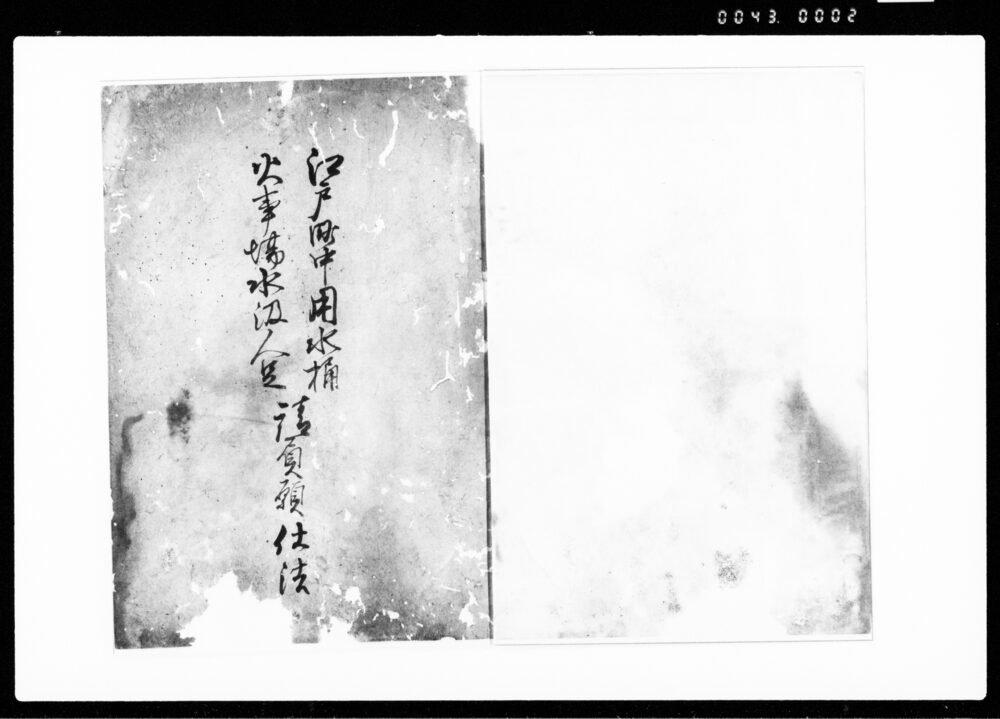 0043. 0002
江戸町中用水桶
火事場水汲人足
請負願仕法